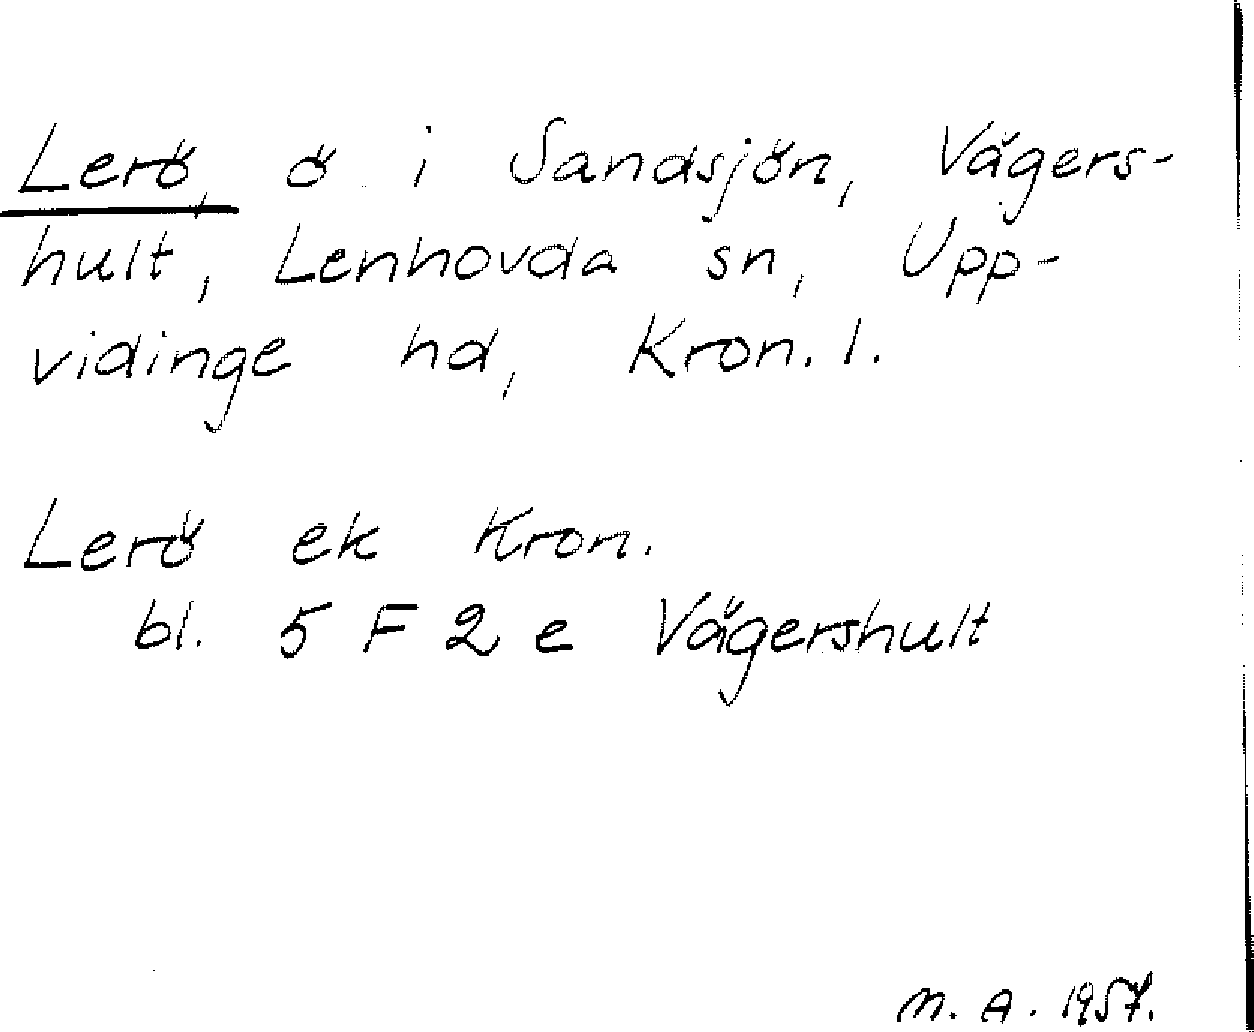 Lerö, ö i Sandsjön, Vägers-
hult, Lenhovda sn, Upp-
vidinge hd, Kron. l.
Lerö ek Kron.
bl. 5 F 2 e Vägershult
M. A. 1957.